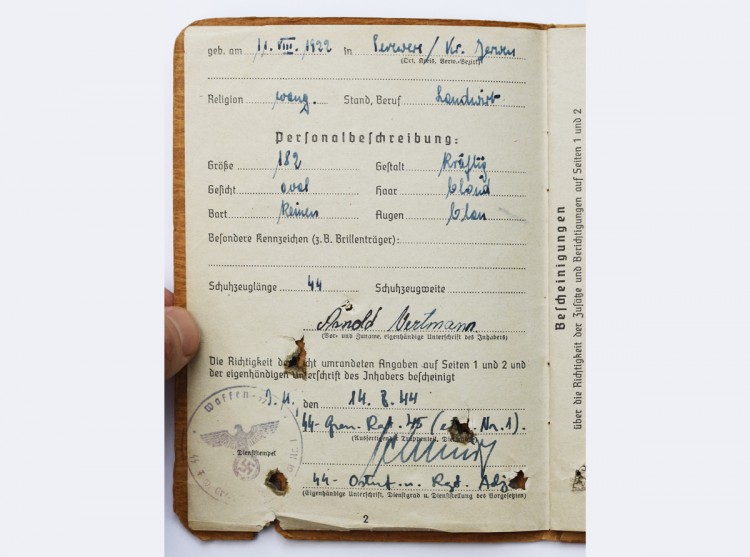 geb. am 11. VIII. 1922 in Terwere / Kr. Jerwen
(Ort, Kreis, Verw.-Bezirk)
Religion evang. Stand, Beruf Landwirt
Personalbeschreibung:
Größe 182 Gestalt kräftig
Gesicht oval Haar blond
Bart keinen Augen blau
Besondere Kennzeichen (z. B. Brillenträger):
Schuhzeuglänge 44 Schuhzeugweite
Arnold Vertmann
(Vor- und Zuname, eigenhändige Unterschrift des Inhabers)
Die Richtigkeit der nicht umrandeten Angaben auf Seiten 1 und 2 und
der eigenhändigen Unterschrift des Inhabers bescheinigt
den 14. 8. 44
44-Gren. Rgt. 45 (estn. Nr. 1).
Waffen-
Dienststempel
44-Ostuf. u. Rgt. Adj.
(Eigenhändige Unterschrift, Dienstgrad u. Dienststellung des Vorgesetzten)
2
Bescheinigungen
über die Richtigkeit der Zusätze und Berichtigungen auf Seiten 1 und 2